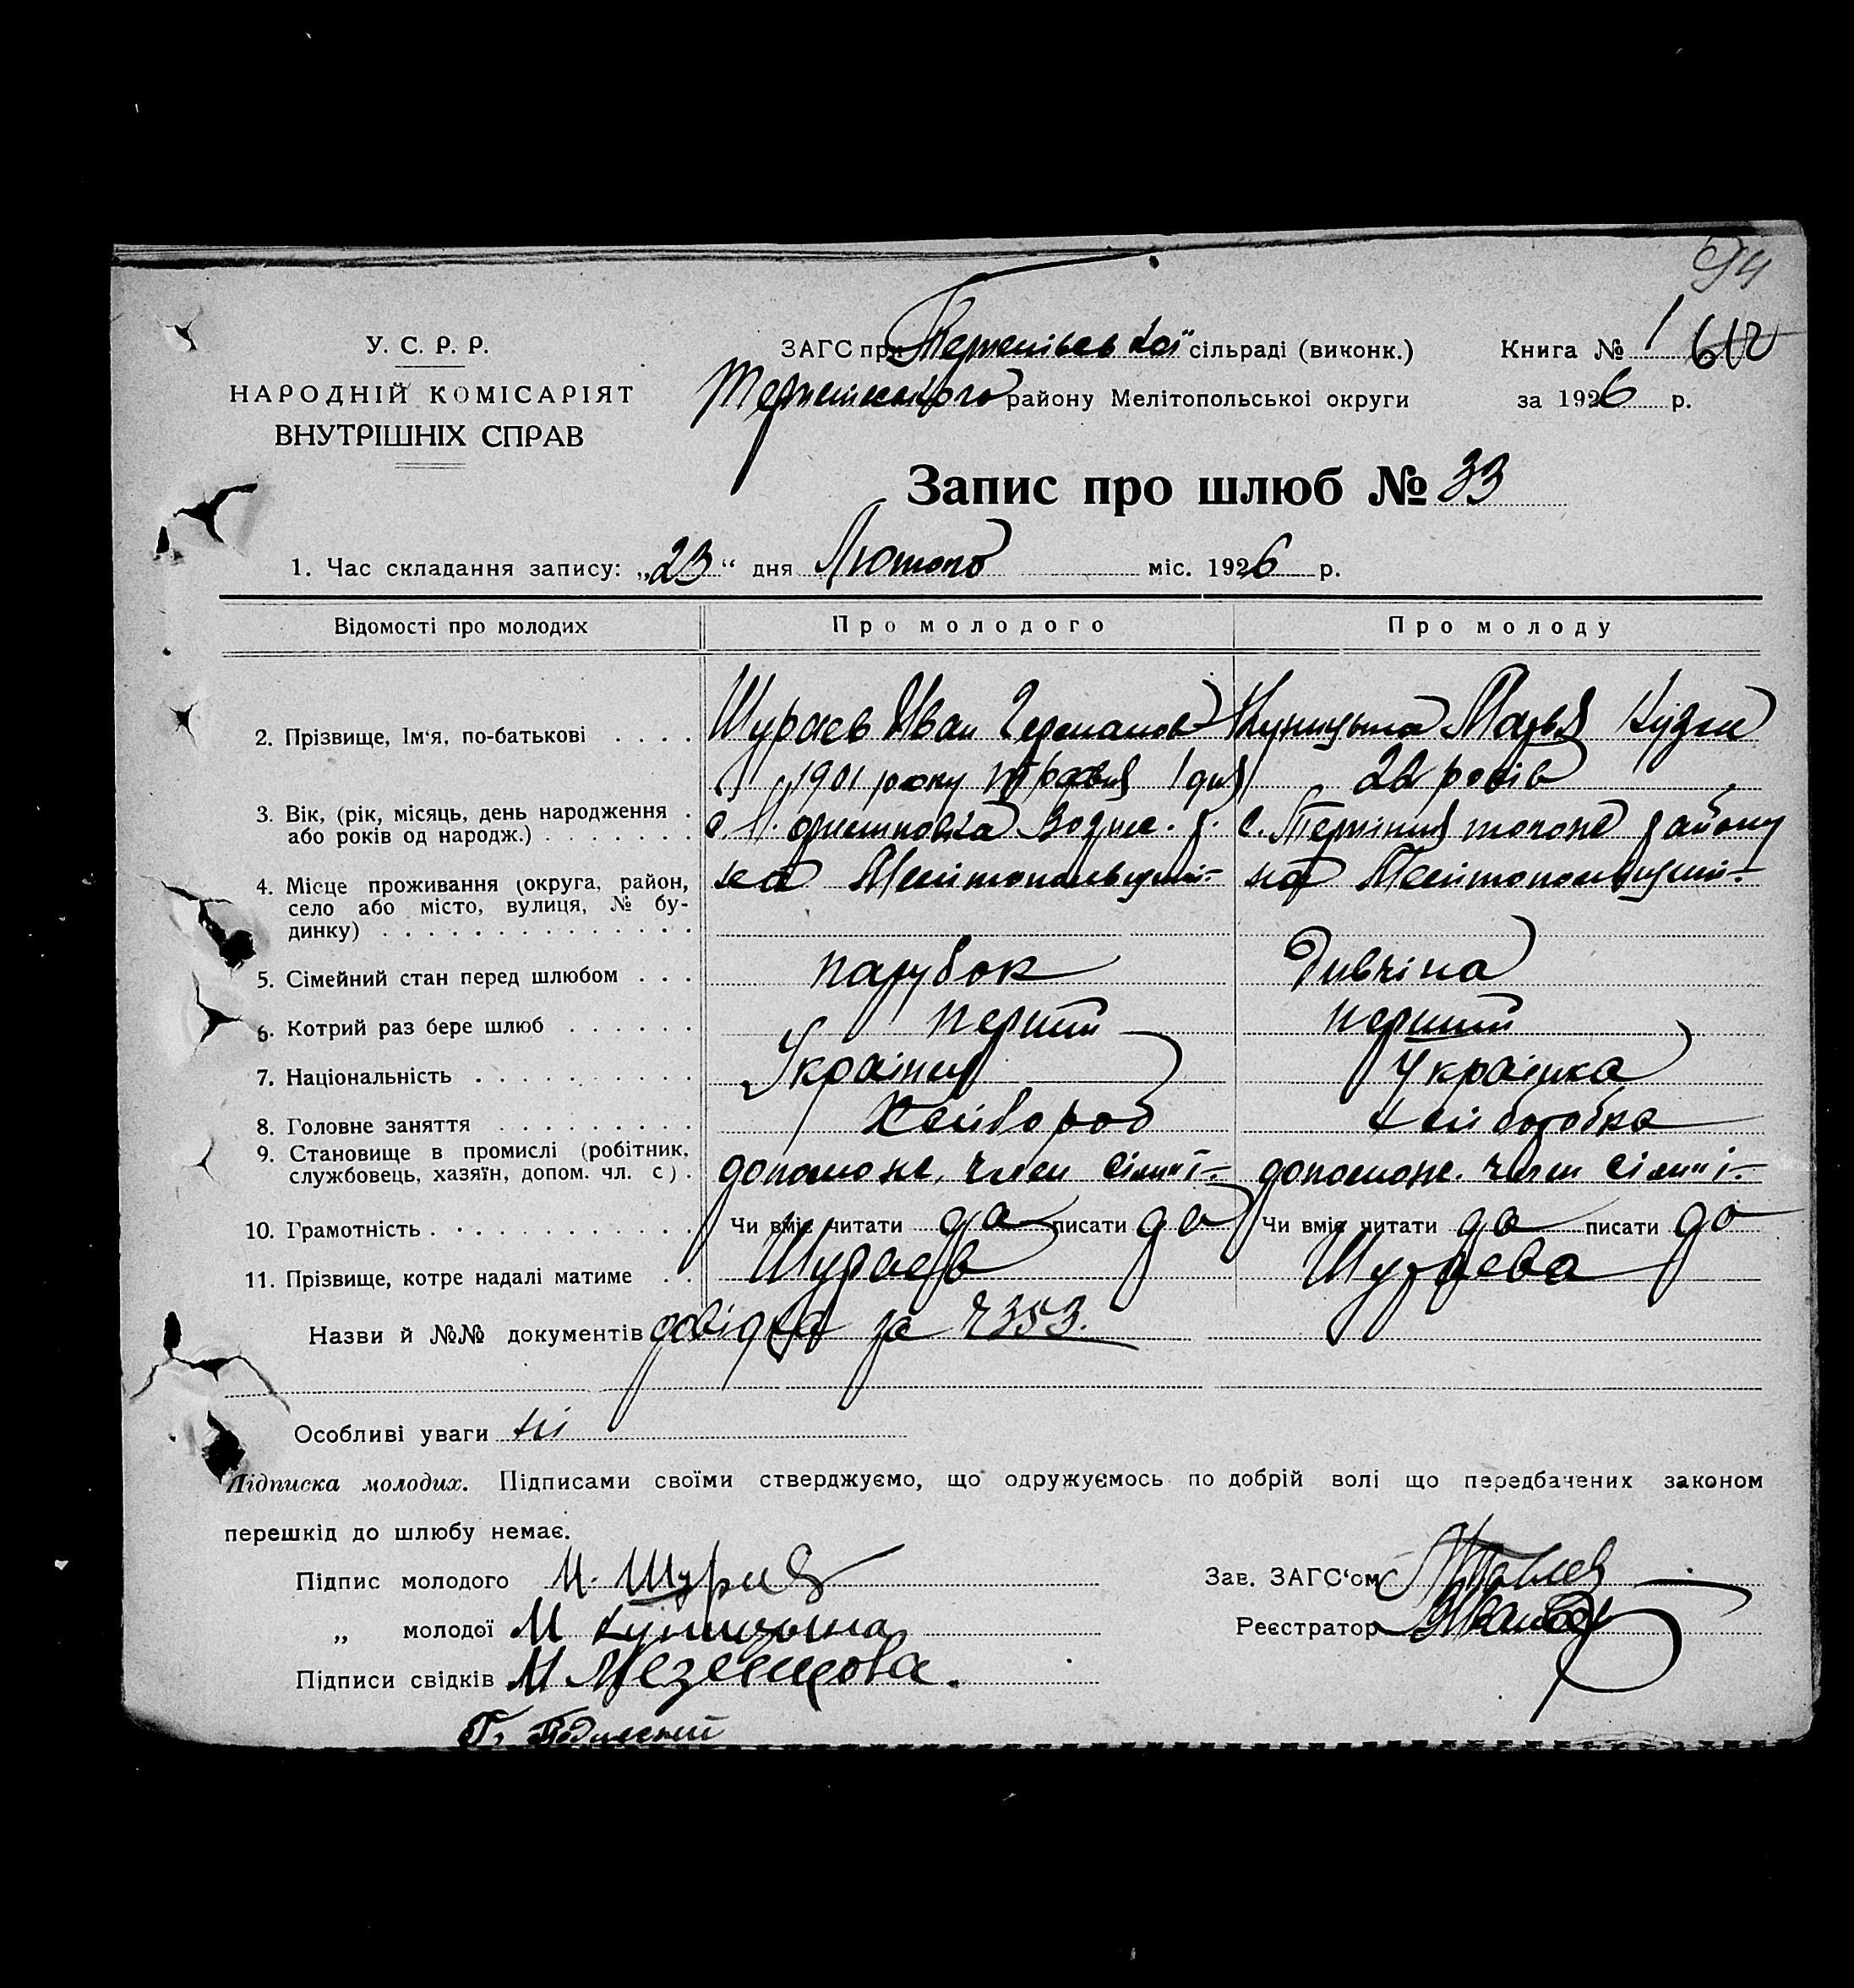 94
У. С. Р. Р.
НАРОДНІЙ КОМІСАРІЯТ
ВНУТРІШНІХ СПРАВ
ЗАГС при сільраді (виконк.)
району Мелітопольськоі округи
Книга № 1
за 1926 р.
Запис про шлюб № 33
1. Час складання запису: „23“ дня Лютого міс. 1926 р.
Відомості про молодих
Про молодого
Про молоду
2. Прізвище, Ім‘я, по-батькові . . . .
Шураєв Іван Германов
Куницина Марья
3. Вік, (рік, місяць, день народження .
або років од народж.) . . . . . . .
1901 року травня 1 дня
22 років
4. Місце проживання (округа, район,
село або місто, вулиця, № бу-
динку) . . . . . . . . . . . . . .
с. района
на Мелітопольщині
с. Терпіння того же району
на Мелітопольщині
5. Сімейний стан перед шлюбом . . .
парубок
Дивчіна
6. Котрий раз бере шлюб . . . . . .
перший
перший
7. Національність . . . . . . . . . .
Українец
Українка
8. Головне заняття . . . . . . . . .
Хлібороб
хліборобка
9. Становище в промислі (робітник,
службовець, хазяїн, допом. чл. с) .
допомож. член сімпї
допомож. член сімпї
10. Грамотність . . . . . . . . . . .
Чи вміє читати да писати да
Чи вміє читати да писати да
11. Прізвище, котре надалі матиме . .
Шураєв
Шураєва
Назви й №№ документів довідка за 353.
Особливі уваги ні
Підписка молодих. Підписами своїми стверджуємо, що одружуємось по добрій волі що передбачених законом
перешкід до шлюбу немає.
Підпис молодого И. Шураєв
„ молодої М Куницына
Підписи свідків М Мезенцова.
Г.
Зав. ЗАГС‘ом
Реєстратор